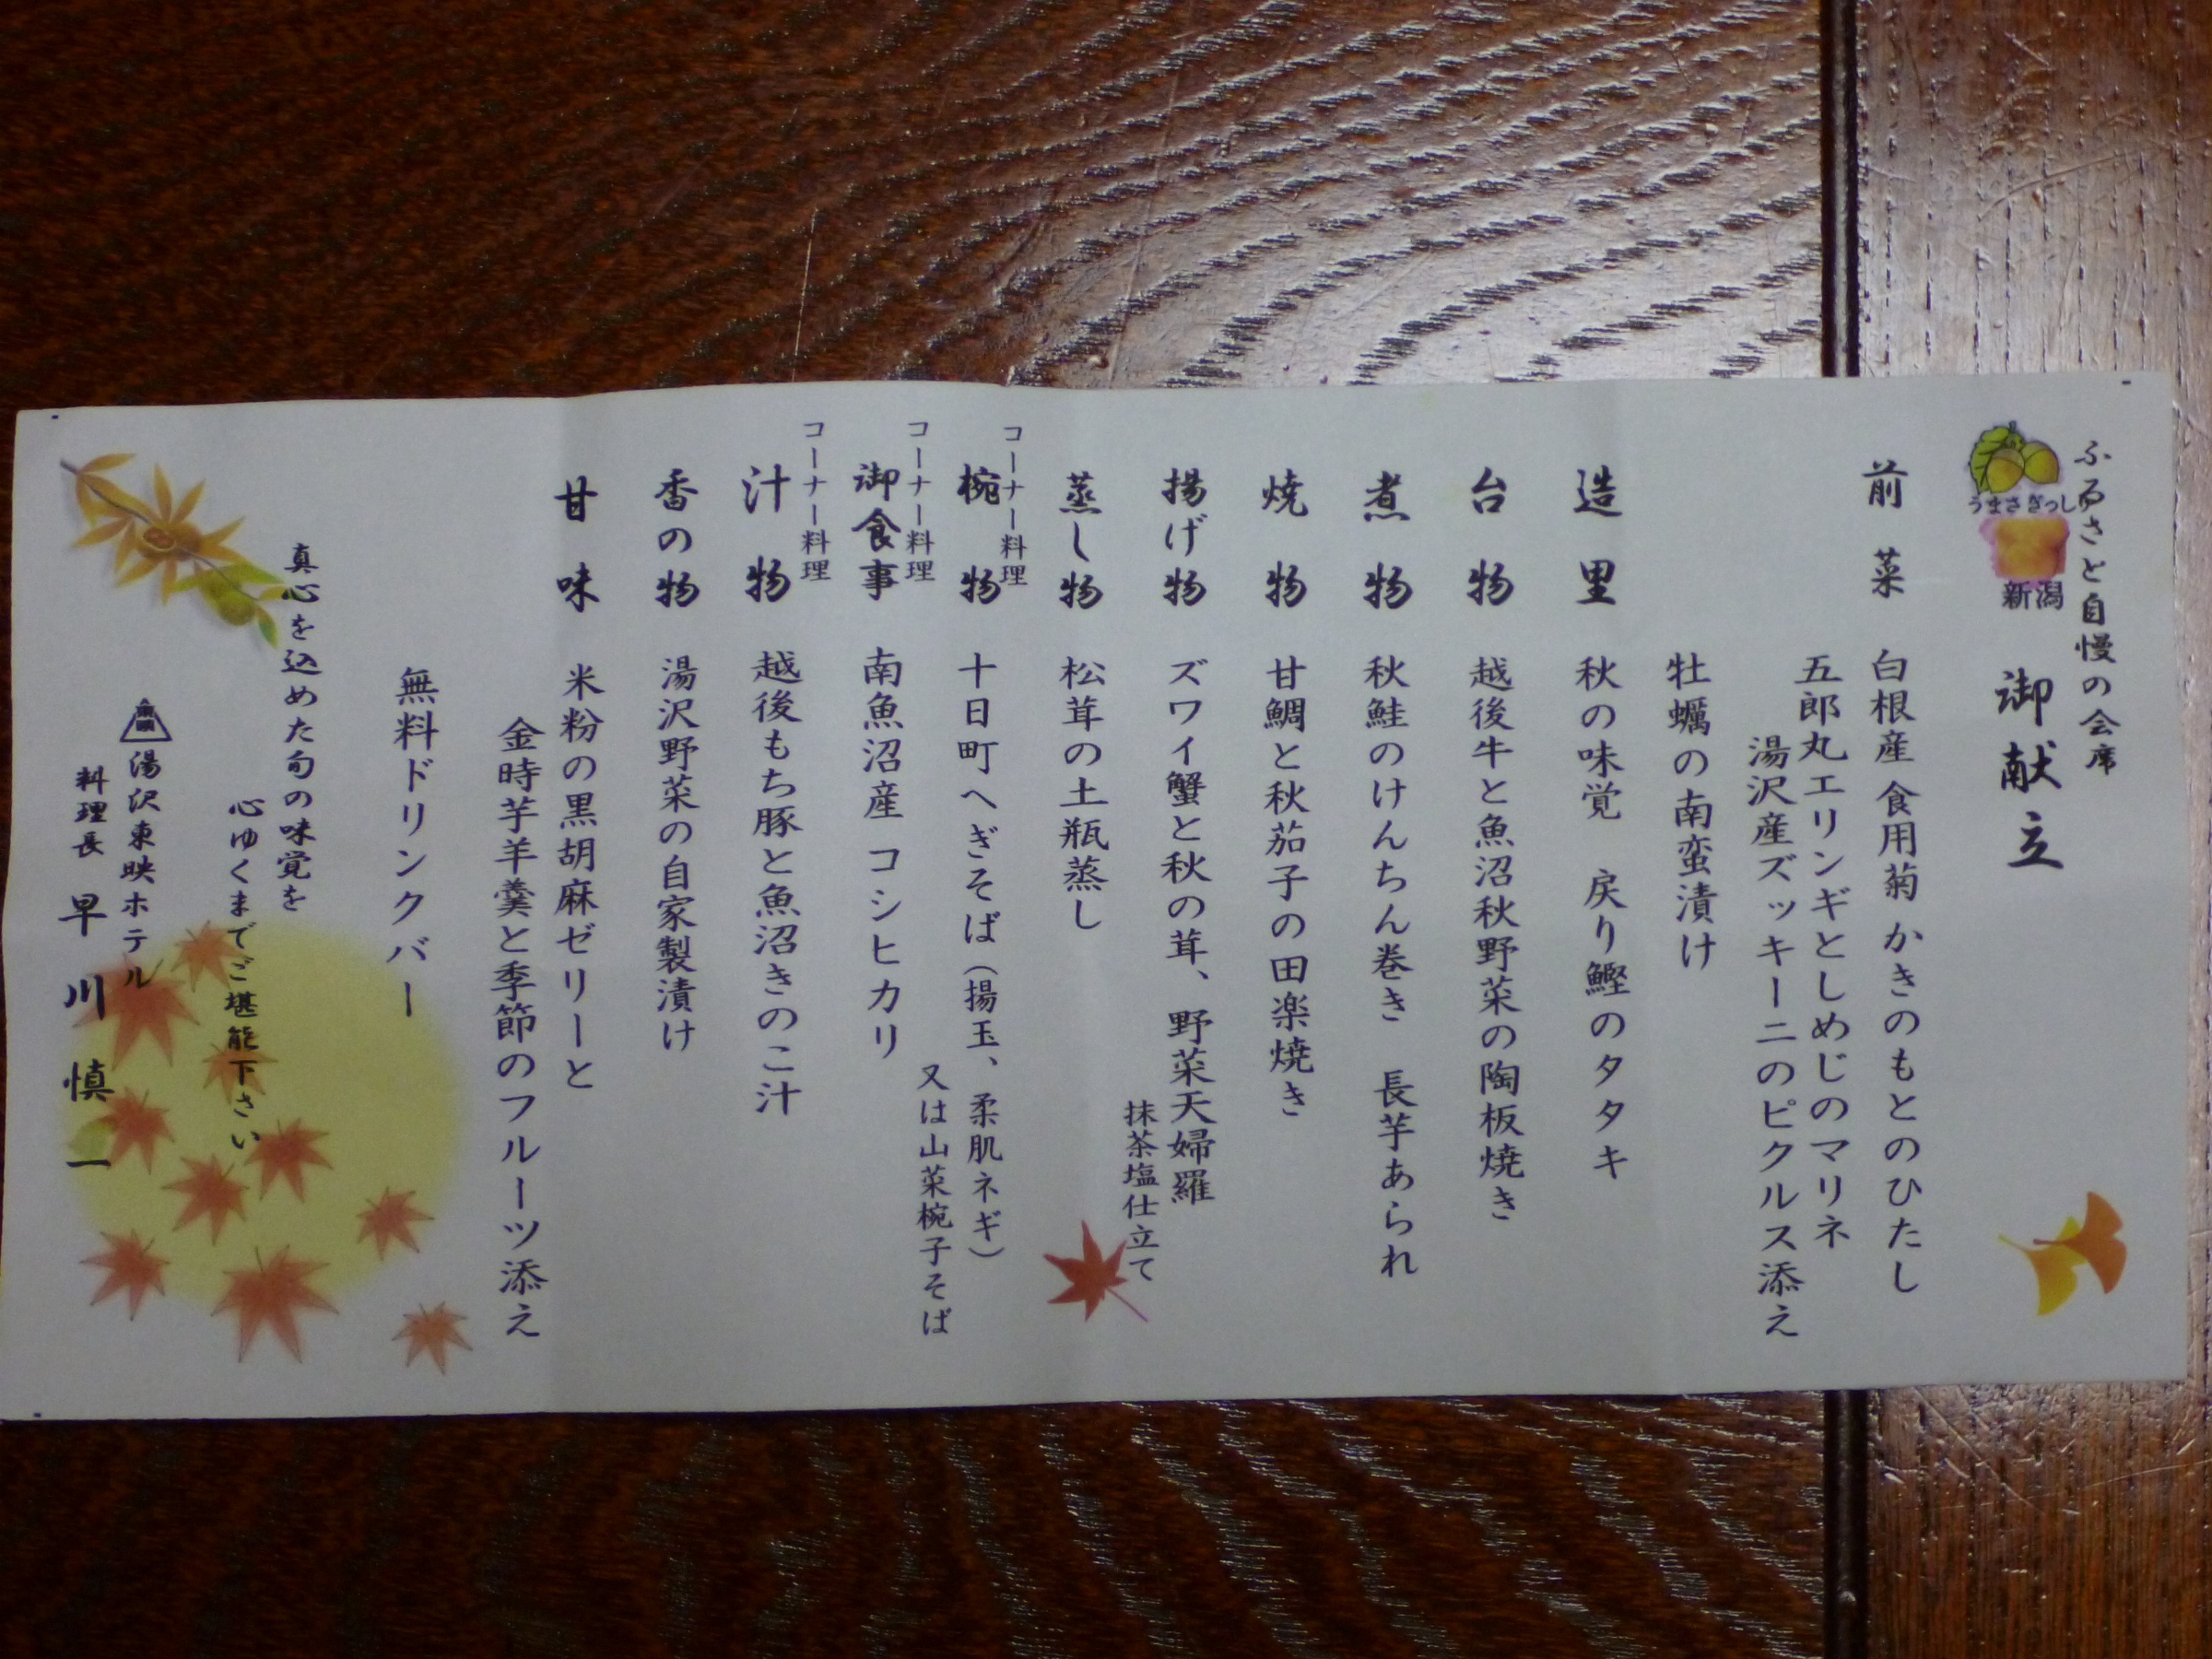 ふるさと自慢の会席
うまさぎっしり
新潟
御献立
前菜 白根産 食用菊 かきのもとのひたし
五郎丸エリンギとしめじのマリネ
湯沢産ズッキーニのピクルス添え
牡蠣の南蛮漬け
造里 秋の味覚 戻り鰹のタタキ
台物 越後牛と魚沼秋野菜の陶板焼き
煮物 秋鮭のけんちん巻き 長芋あられ
焼物 甘鯛と秋茄子の田楽焼き
揚げ物 ズワイ蟹と秋の茸、野菜天婦羅
抹茶塩仕立て
蒸し物 松茸の土瓶蒸し
コーナー料理
椀物 十日町へぎそば(揚玉、柔肌ネギ)
又は山菜椀子そば
コーナー料理
御食事 南魚沼産 コシヒカリ
コーナー料理
汁物 越後もち豚と魚沼きのこ汁
香の物 湯沢野菜の自家製漬け
甘味 米粉の黒胡麻ゼリーと
金時芋羊羹と季節のフルーツ添え
無料ドリンクバー
真心を込めた旬の味覚を
心ゆくまでご堪能下さい
湯沢東映ホテル
料理長 早川慎一